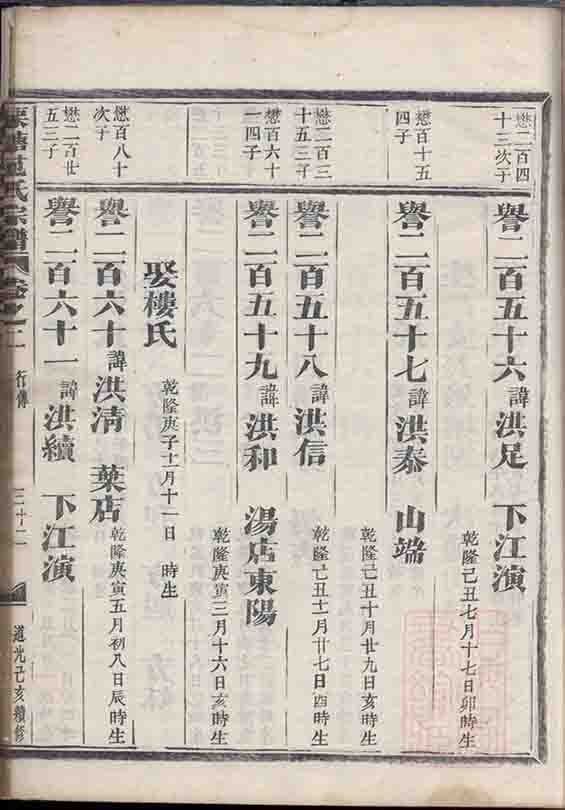 懋二百四
十三次子
譽二百五十六 諱 洪足 下江演
乾隆己丑七月十七日卯時生
懋百十五
四子
譽二百五十七 諱 洪泰 山端
乾隆己丑十月廿九日亥時生
懋二百三
十五三子
譽二百五十八 諱 洪信
乾隆己丑十二月廿七日酉時生
懋百六十
一四子
譽二百五十九 諱 洪和 湯店東陽
乾隆庚寅三月十六日亥時生
娶樓氏
乾隆庚子十一月十一日 時生
懋百八十
次子
譽二百六十 諱 洪清 葉店
乾隆庚寅五月初八日辰時生
懋二百廿
五三子
譽二百六十一 諱 洪續 下江演
氏宗譜 卷之二 行傳
三十二
道光己亥續修